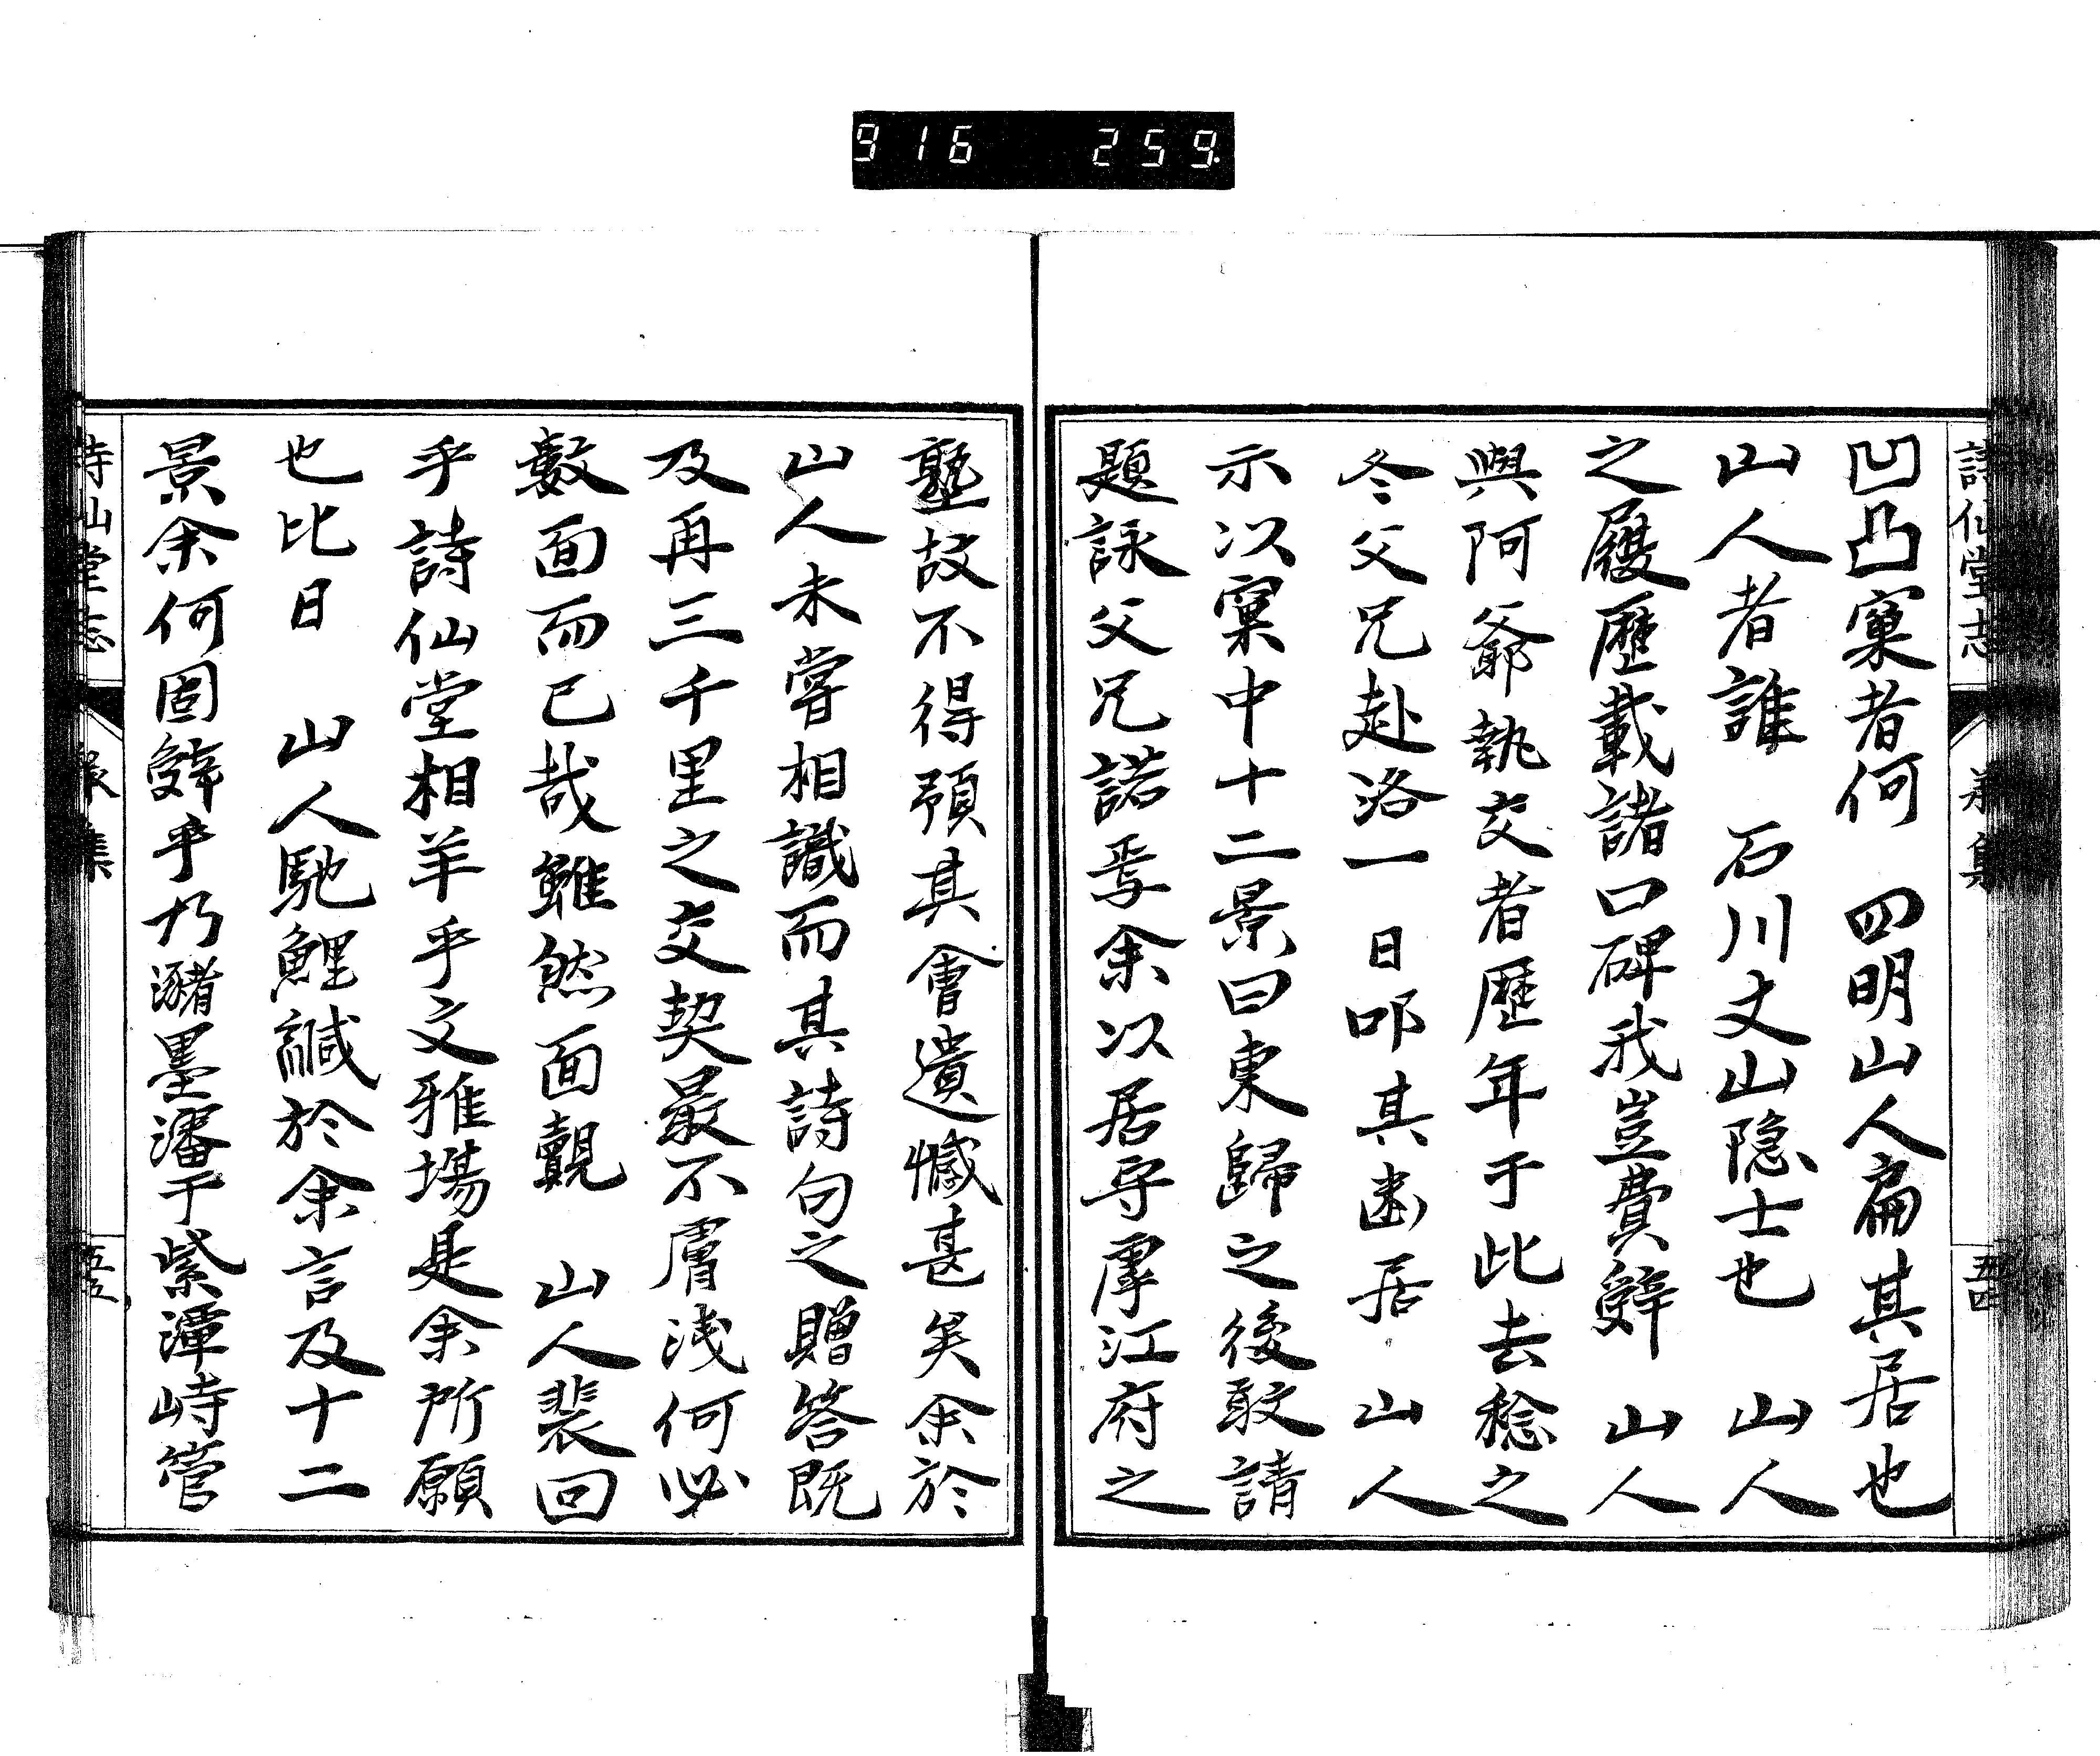 916 259
詩仙堂志
五四
凹凸窠者何　四明山人扁其居也
山人者誰　石川丈山隠士也　山人
之履歷載諸口碑我豈費辭　山人
與阿爺執交者歷年于此去稔之
冬父兄赴洛一日叩其幽居　山人
示以窠中十二景曰東歸之後敢請
題詠父兄諾焉余以居守厚江府之
塾故不得預其會遺憾甚矣余於
山人未嘗相識而其詩句之贈答既
及再三千里之交契最不膚淺何必
數面而已哉雖然面覿　山人裴回
乎詩仙堂相羊乎文雅場是余所願
也比日　山人馳鯉緘於余言及十二
景余何固辭乎乃瀦墨瀋于紫潭峙管
詩仙堂志
集
五五